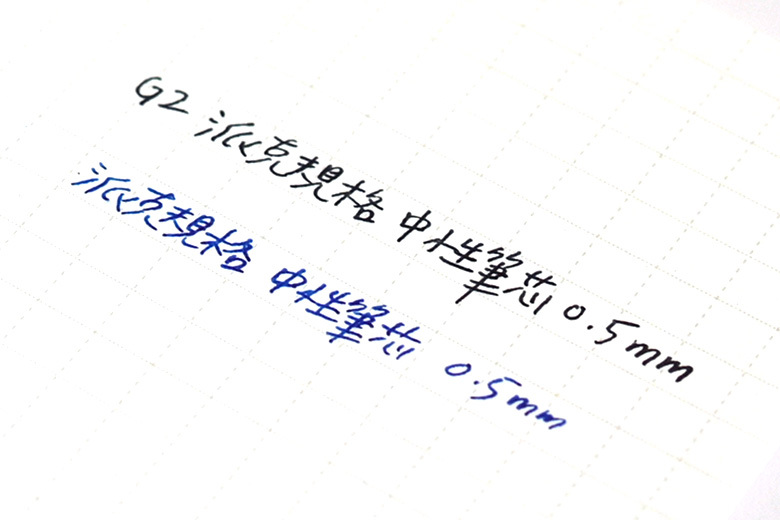 G2 派克規格 中性筆芯 0.5mm
派克規格 中性筆芯 0.5mm